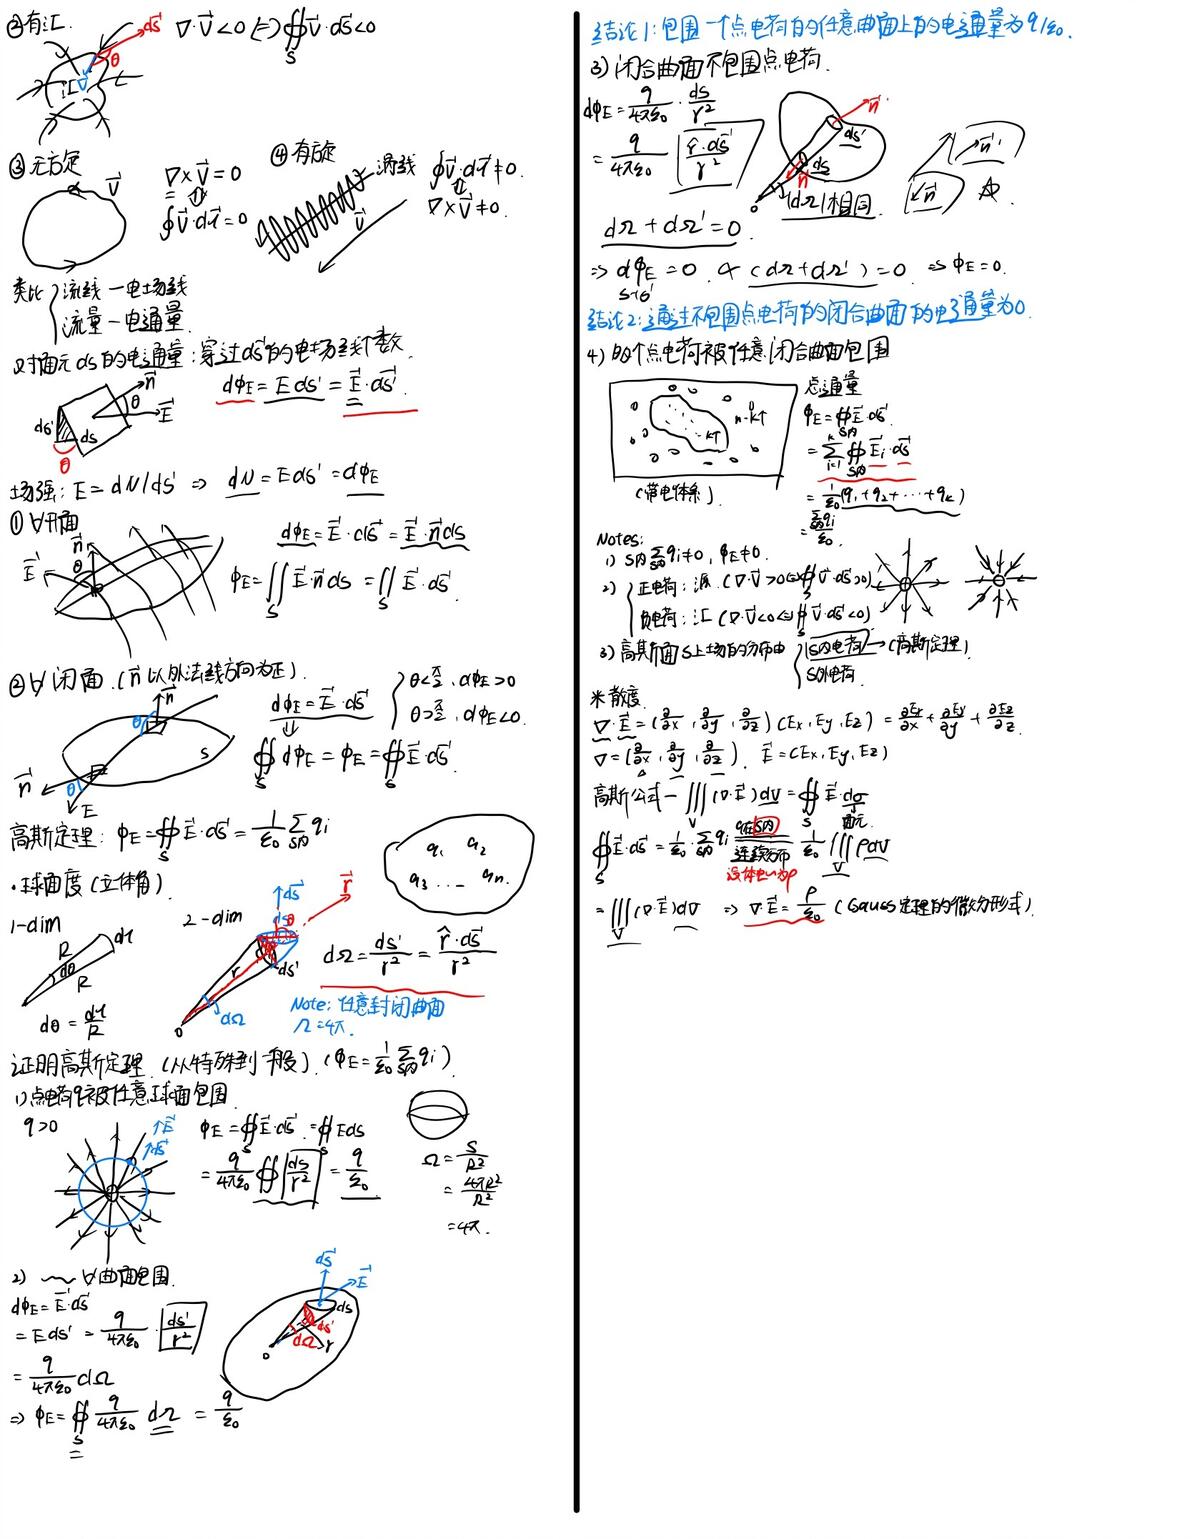 ②有汇 ds⃗ θ ∇·V⃗<0 ⇔ ∯_S V⃗·ds⃗<0
汇 V⃗
③无旋 V⃗ ∇×V⃗=0
∮V⃗·dl⃗=0
④有旋 涡线 V⃗ ∮V⃗·dl⃗≠0.
∇×V⃗≠0.
类比 { 流线—电场线
流量—电通量.
对面元ds的电通量:穿过ds的电场线个数.
dφ_E=Eds'=E⃗·ds⃗
n⃗ θ E⃗ ds' ds θ
场强:E=dN/ds' ⇒ dN=Eds'=dφ_E
①∀开面 dφ_E=E⃗·ds⃗=E⃗·n⃗ds
n⃗ E⃗ θ
φ_E=∬_S E⃗·n⃗ds=∬_S E⃗·ds⃗.
②∀闭面.(n⃗以外法线方向为正).
n⃗ θ S n⃗ θ E
dφ_E=E⃗·ds⃗ { θ<π/2, dφ_E>0
θ>π/2, dφ_E<0.
∯_S dφ_E=φ_E=∯_S E⃗·ds⃗.
高斯定理: φ_E=∯_S E⃗·ds⃗=1/ε₀ Σ_{S内} qᵢ
q₁ q₂
q₃ ... qₙ.
·球面度(立体角).
1-dim R dθ R dl
dθ=dl/R
2-dim ds⃗ r⃗ ds θ ds' r dΩ o
dΩ=ds'/r²=r̂·ds⃗/r²
Note:任意封闭曲面
Ω=4π.
证明高斯定理.(从特殊到一般).(φ_E=1/ε₀ Σ_{S内} qᵢ).
1)点电荷q被任意球面包围
q>0 E⃗ ds⃗
φ_E=∯_S E⃗·ds⃗=∯_S Eds
=q/4πε₀ ∯ ds/r² = q/ε₀
Ω=S/R²
=4πR²/R²
=4π.
2) ~ ∀曲面包围.
dφ_E=E⃗·ds⃗
=Eds'=q/4πε₀·ds'/r²
=q/4πε₀ dΩ
⇒ φ_E=∯_S q/4πε₀ dΩ = q/ε₀
ds⃗ E⃗ ds ds' dΩ r o
结论1:包围一个点电荷的任意曲面上的电通量为q/ε₀.
3)闭合曲面不包围点电荷.
dφ_E=q/4πε₀·ds/r²
=q/4πε₀ r̂·ds⃗/r²
n⃗' ds' ds n⃗ o |dΩ|相同.
n⃗' n⃗
dΩ+dΩ'=0.
⇒ dφ_E=0 ∝(dΩ+dΩ')=0 ⇒ φ_E=0.
结论2:通过不包围点电荷的闭合曲面的电通量为0.
4)多个点电荷被任意闭合曲面包围
n-k个
k个
(带电体系).
总通量
φ_E=∯_{S内} E⃗·ds⃗
=Σ_{i=1}^{k} ∯_{S内} E⃗ᵢ·ds⃗
=1/ε₀(q₁+q₂+···+q_k)
=Σ_{S内}qᵢ/ε₀.
Notes:
1) S内Σqᵢ≠0, φ_E≠0.
2) { 正电荷:源.(∇·V⃗>0⇔∯_S V⃗·ds⃗>0)
负电荷:汇(∇·V⃗<0⇔∯_S V⃗·ds⃗<0)
3)高斯面S上场的分布由 { S内电荷→(高斯定理)
S外电荷.
※散度.
∇·E⃗=(∂/∂x, ∂/∂y, ∂/∂z)(Ex, Ey, Ez)=∂Ex/∂x+∂Ey/∂y+∂Ez/∂z.
∇=(∂/∂x, ∂/∂y, ∂/∂z). E⃗=(Ex, Ey, Ez)
高斯公式—∭_V(∇·E⃗)dV=∯_S E⃗·dσ
面元.
∯_S E⃗·ds⃗=1/ε₀·Σ_{S内}qᵢ q在S内 连续分布 设体电荷为ρ 1/ε₀∭_V ρdV
=∭_V(∇·E⃗)dV ⇒ ∇·E⃗=ρ/ε₀ (Gauss定理的微分形式).